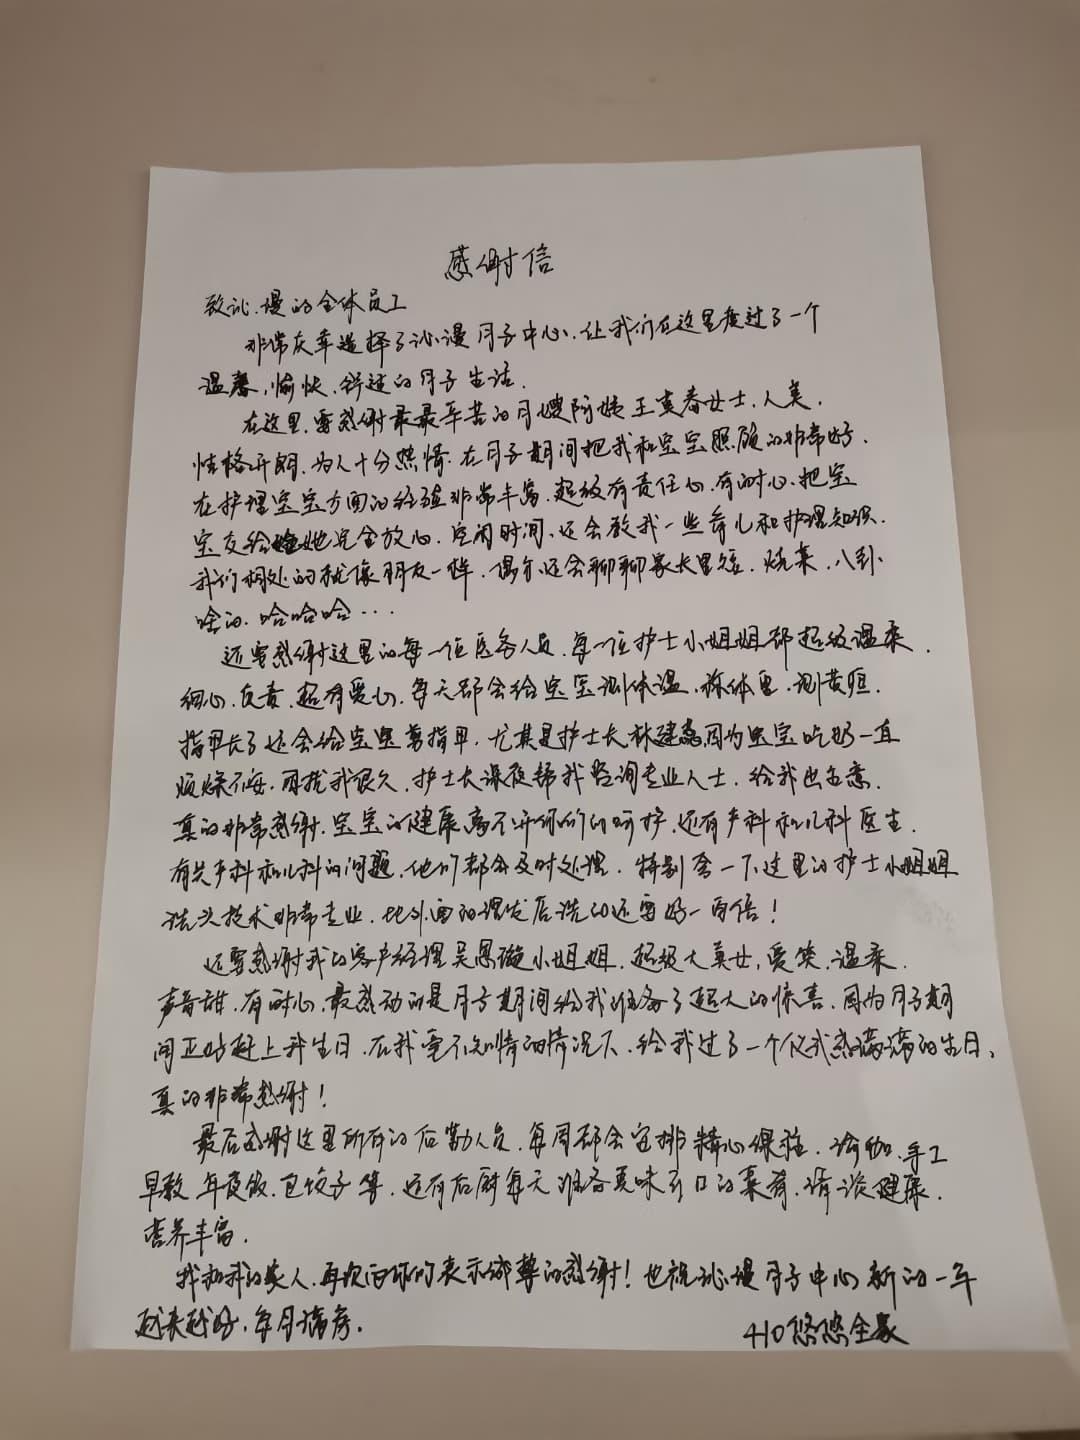 感谢信
致沁漫的全体员工
非常庆幸选择了沁漫月子中心、让我们在这里度过了一个
温馨、愉快、舒适的月子生活、
在这里、要感谢最最辛苦的月嫂阿姨王寅春女士、人美、
性格开朗、为人十分热情、在月子期间把我和宝宝照顾的非常好、
在护理宝宝方面的经验非常丰富、超级有责任心、有耐心、把宝
宝交给她完全放心、空闲时间、还会教我一些育儿和护理知识、
我们相处的就像朋友一样、偶尔还会聊聊家长里短、烧菜、八卦
啥的、哈哈哈...
还要感谢这里的每一位医务人员、每一位护士小姐姐都超级温柔、
细心、负责、超有爱心、每天都会给宝宝测体温、称体重、测黄疸、
指甲长了还会给宝宝剪指甲、尤其是护士长林建 因为宝宝吃奶一直
烦燥不安、困扰我很久、护士长深夜帮我咨询专业人士、给我出主意、
真的非常感谢、宝宝的健康离不开你们的呵护、还有产科和儿科医生、
有关产科和儿科的问题、他们都会及时处理、特别夸一下这里的护士小姐姐
洗头技术非常专业、比外面的理发店洗的还要好一百倍！
还要感谢我的客户经理吴恩璇小姐姐、超级大美女、爱笑、温柔、
声音甜、有耐心、最感动的是月子期间给我准备了超大的惊喜、因为月子期
间正好赶上我生日、在我毫不知情的情况下、给我过了一个仪式感满满的生日、
真的非常感谢！
最后感谢这里所有的后勤人员、每周都会安排精心课程、瑜伽、手工
早教、年夜饭、包饺子等、还有后厨每天准备美味可口的菜肴、清淡健康、
营养丰富、
我和我的家人、再次向你们表示诚挚的感谢！也祝沁漫月子中心新的一年
越来越好、每月满房、
410悠悠全家